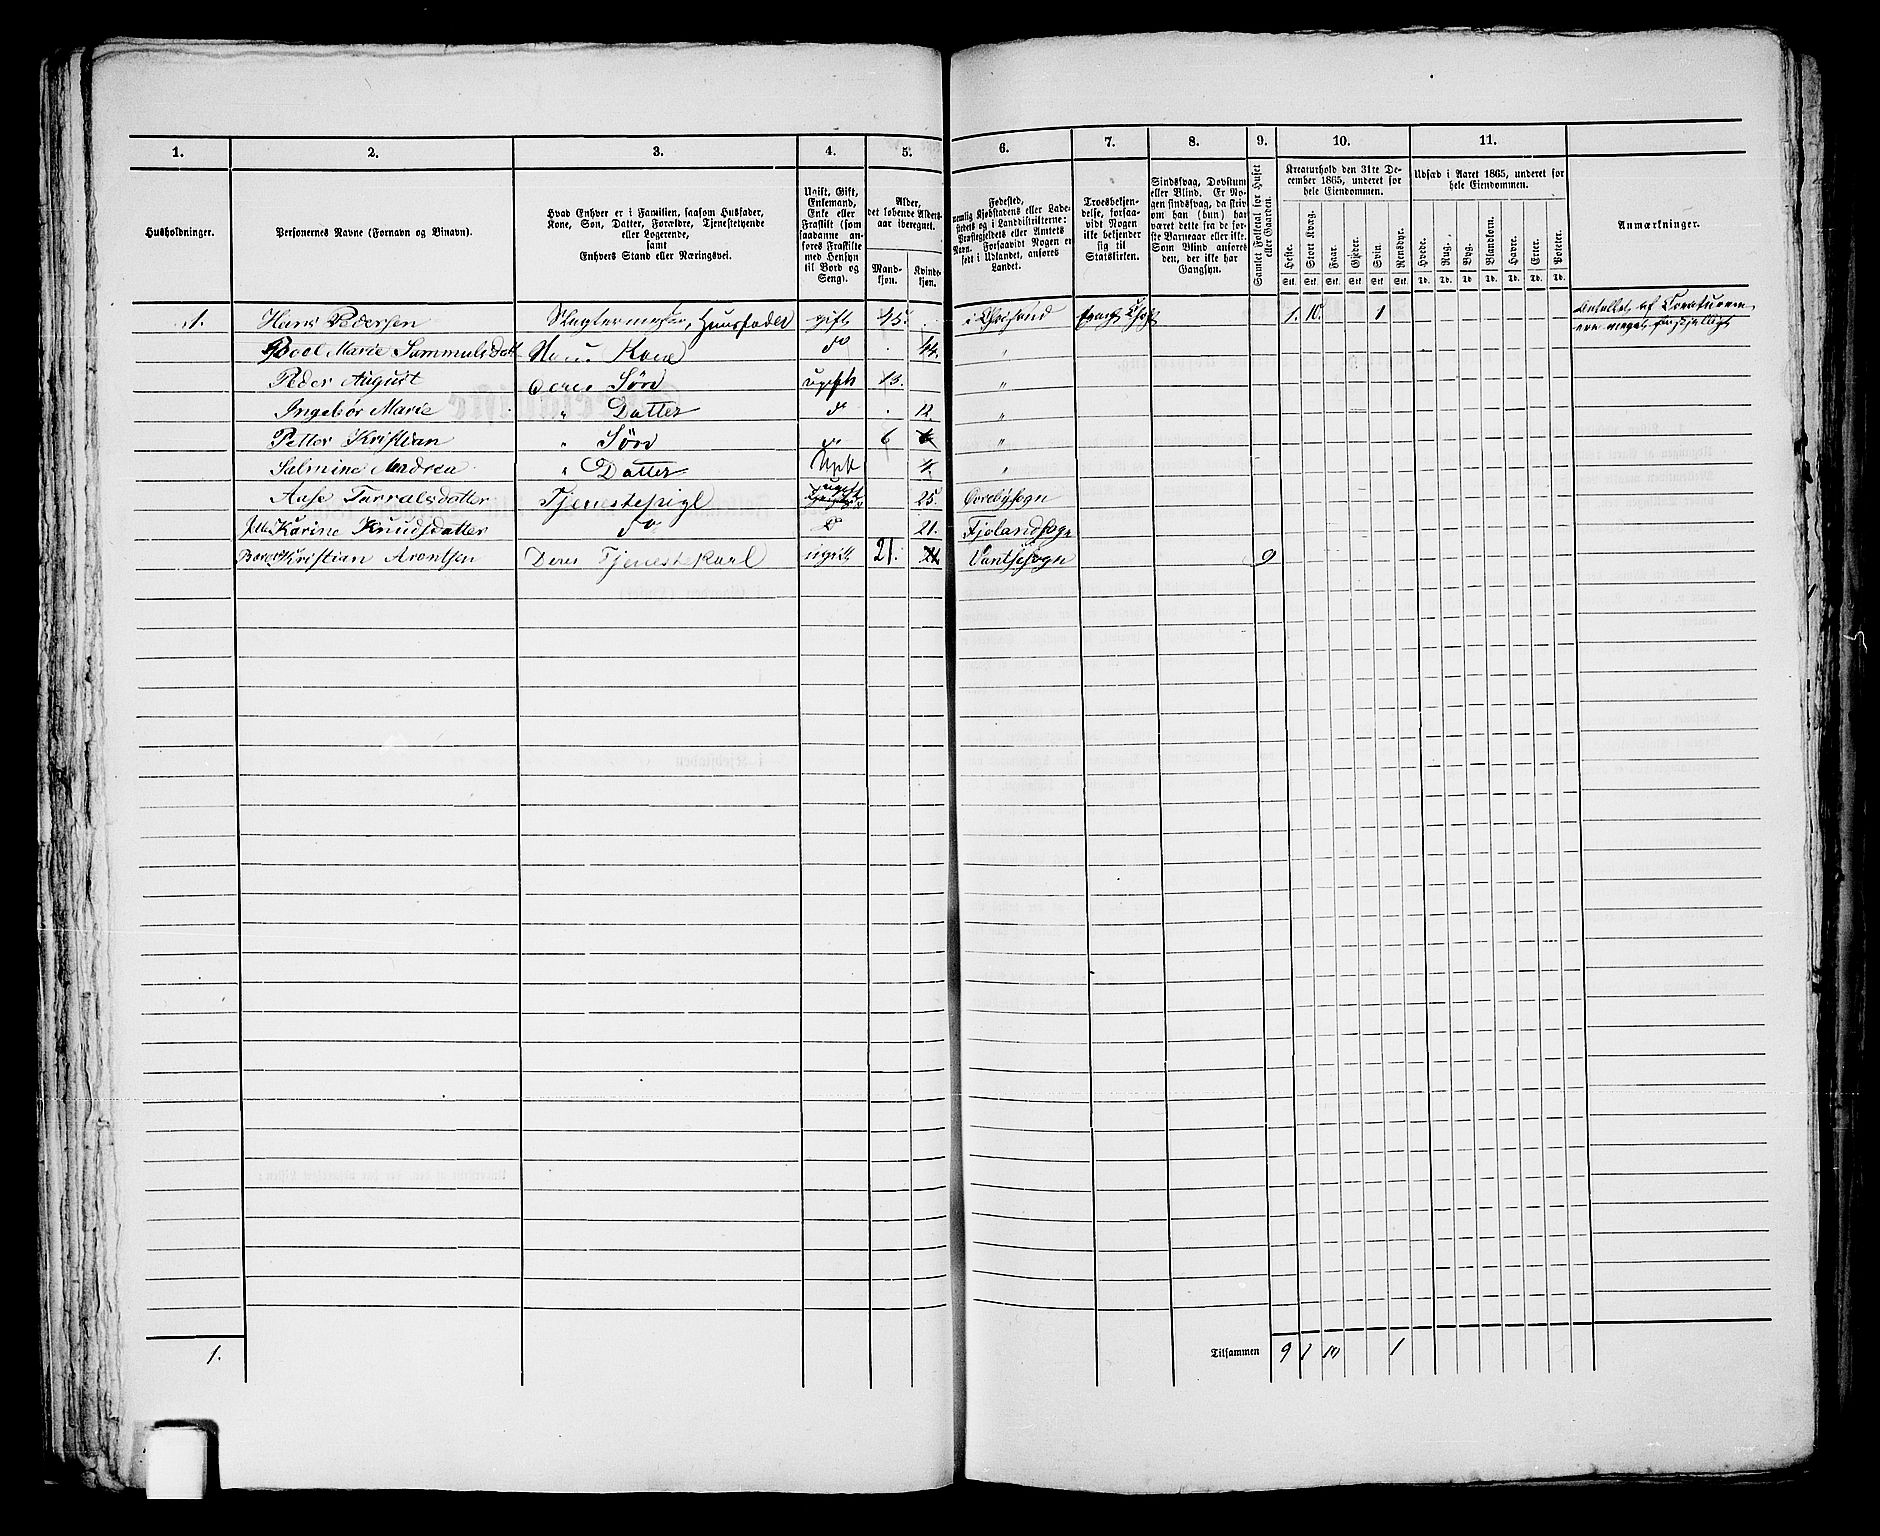 1. 2. 3. 4. 5. 6. 7. 8. 9. 10. 11.
Husholdninger.
Personernes Navne (Fornavn og Tilnavn).
Hvad Enhver er i Familien, saasom Husfader,
Kone, Søn, Datter, Forældre, Tjenestetyende
eller Logerende,
samt
Enhvers Stand eller Næringsvei.
Ugift, Gift,
Enkemand,
Enke eller
Fraskilt (som
saadanne an-
føres Fraskilte
med Hensyn
til Bord og
Seng).
Alder,
det løbende Alders-
aar iberegnet.
Mand-
kjøn.
Kvinde-
kjøn.
Fødested,
nemlig Kjøbstadens eller Lade-
stedets og i Landdistrikterne:
Præstegjeldets eller Amtets
Navn. Forsaavidt Nogen er
født i Udlandet, anføres
Landet.
Troesbekjen-
delse, forsaa-
vidt Nogen
ikke bekjender
sig til
Statskirken.
Sindssvag, Døvstum
eller Blind. Er No-
gen sindssvag, da skriv
om han (hun) har
været dette fra de før-
ste Barneaar eller ikke.
Som Blind anføres
den, der ikke har
Gangsyn.
Samlet Folketal for Huset
eller Gaarden.
Kreaturhold den 31te De-
cember 1865, underet for
hele Eiendommen.
Heste. Stort Kvæg. Faar. Gjeder. Svin. Rensdyr.
Stk. Stk. Stk. Stk. Stk. Stk.
Udsæd i Aaret 1865, underet for
hele Eiendommen.
Hvede. Rug. Byg. Blandkorn. Havre. Erter. Poteter.
Td. Td. Td. Td. Td. Td. Td.
Anmærkninger.
1. Hans Pedersen Slagtermester, Huusfader gift 45. i Chrsand 1. 10. 1 Antallet af Creaturene
ere meget forskjelligt
Bool Marie Sammulsdatt Hans Kone do 44. "
Peder August deres Sön ugift 13. "
Ingebor Marie " Datter do 12 "
Petter Kristian " Sön " 6 6 "
Salmine Andrea " Datter Ugift 4. "
Aase Tarralsdatter Tjenestepige ugift 25. Oddernæssogn
Karine Knudsdatter do do 21. Fjolandsogn
Kristian Arontsen Deres Tjenestekarl ugift 21. 21 Vantsesogn 9
1. Tilsammen 9 1 10 1